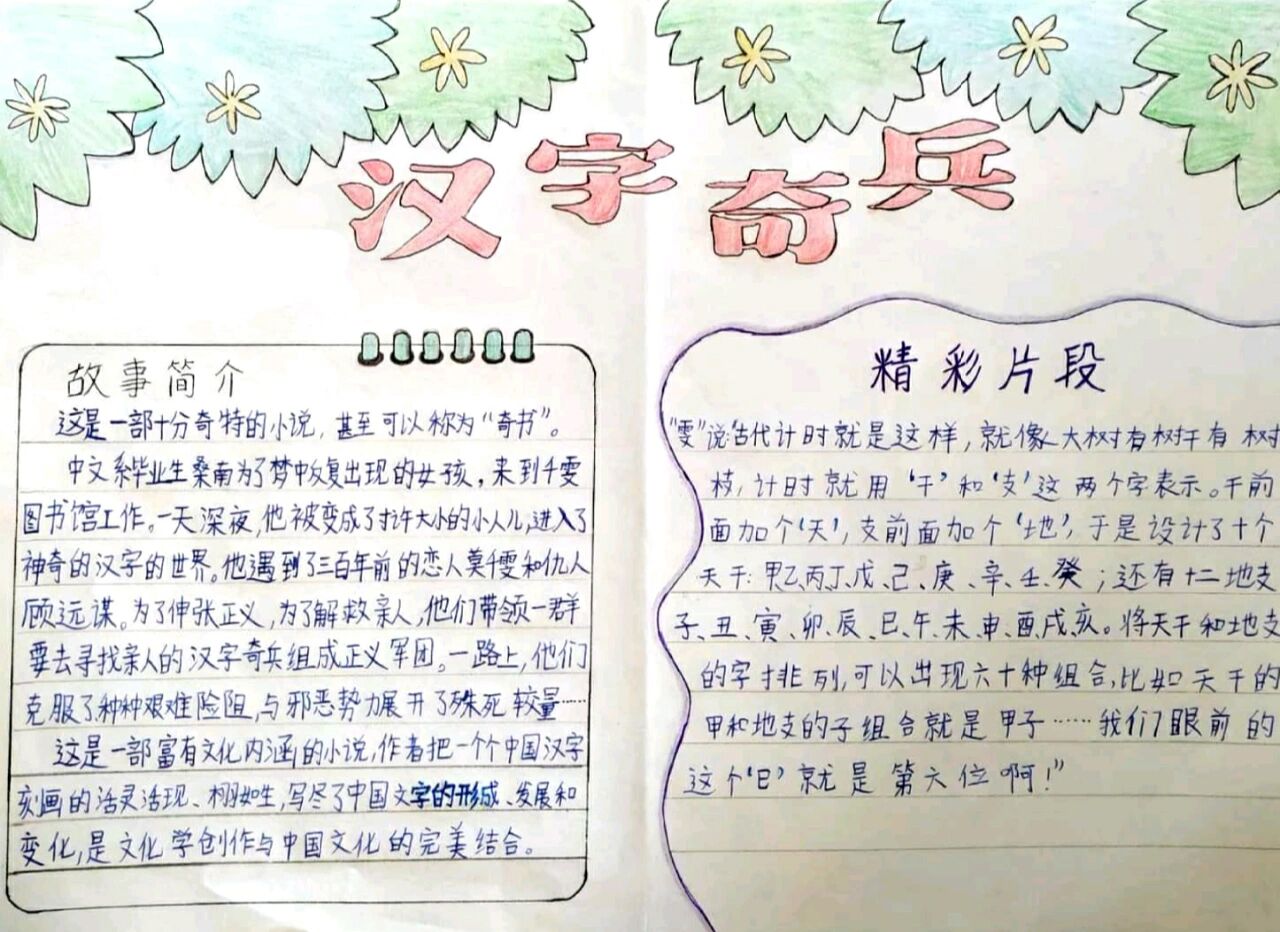 汉字奇兵
故事简介
这是一部十分奇特的小说，甚至可以称为“奇书”。
中文系毕业生桑南为了梦中反复出现的女孩，来到千雯
图书馆工作。一天深夜，他被变成了寸许大小的小人儿，进入了
神奇的汉字的世界。他遇到了三百年前的恋人莫千雯和仇人
顾远谋。为了伸张正义，为了解救亲人，他们带领一群
要去寻找亲人的汉字奇兵组成正义军团。一路上，他们
克服了种种艰难险阻，与邪恶势力展开了殊死较量……
这是一部富有文化内涵的小说，作者把一个个中国汉字
刻画的活灵活现、栩如生，写尽了中国文字的形成、发展和
变化，是文化学创作与中国文化的完美结合。
精彩片段
“雯”说：“古代计时就是这样，就像大树有树干有树
枝，计时就用‘干’和‘支’这两个字表示。干前
面加个‘天’，支前面加个‘地’，于是设计了十个
天干：甲乙丙丁、戊、己、庚、辛、壬、癸；还有十二地支
子、丑、寅、卯、辰、巳、午、未、申、酉、戌、亥。将天干和地支
的字排列，可以出现六十种组合，比如天干的
甲和地支的子组合就是甲子……我们眼前的
这个‘巳’就是第六位啊！”